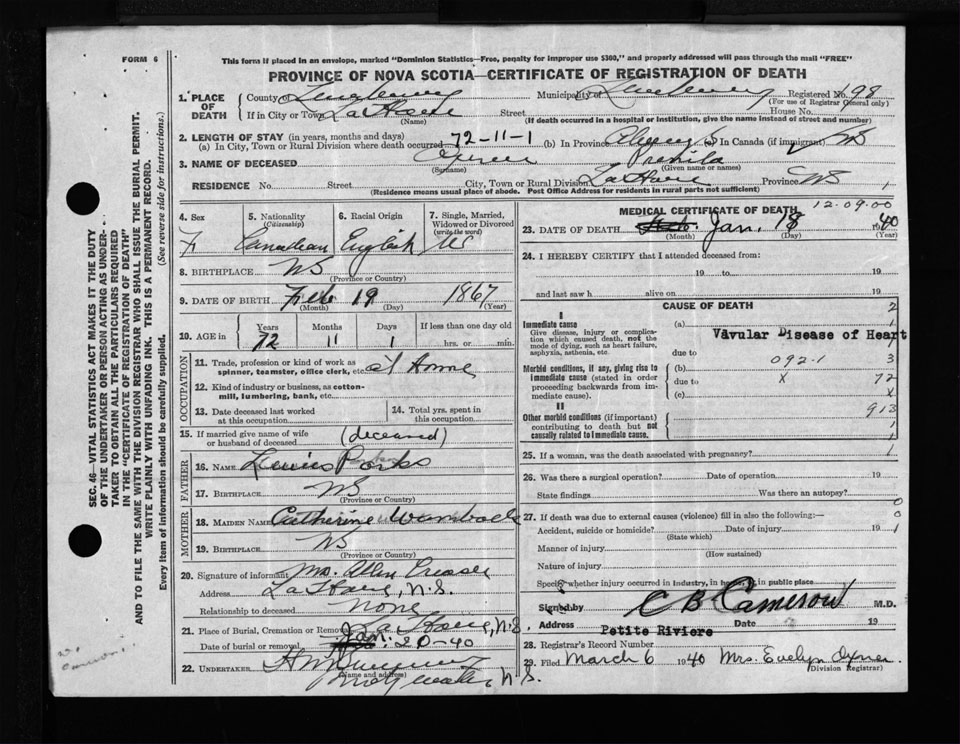 FORM 6
This form if placed in an envelope, marked "Dominion Statistics—Free, penalty for improper use $300," and properly addressed will pass through the mail "FREE"
PROVINCE OF NOVA SCOTIA—CERTIFICATE OF REGISTRATION OF DEATH
1. PLACE OF DEATH County of Lunenburg Municipality of Lunenburg Registered No. 98
(For use of Registrar General only)
If in City or Town La Have Street House No.
(Name) (If death occurred in a hospital or institution, give the name instead of street and number)
2. LENGTH OF STAY (in years, months and days)
(a) In City, Town or Rural Division where death occurred 72-11-1 (b) In Province Always (c) In Canada (if immigrant) NS
3. NAME OF DECEASED Oxner
(Surname) (Given name or names)
RESIDENCE No. Street City, Town or Rural Division La Have Province NS 1
(Residence means usual place of abode. Post Office Address for residents in rural parts not sufficient)
4. Sex 5. Nationality (Citizenship) 6. Racial Origin 7. Single, Married, Widowed or Divorced (write the word)
F Canadian English W
8. BIRTHPLACE NS
(Province or Country)
9. DATE OF BIRTH Feb 19 1867
(Month) (Day) (Year)
10. AGE in Years Months Days If less than one day old
72 11 1 hrs. or min.
OCCUPATION
11. Trade, profession or kind of work as spinner, teamster, office clerk, etc. at Home
12. Kind of industry or business, as cotton-mill, lumbering, bank, etc.
13. Date deceased last worked at this occupation 14. Total yrs. spent in this occupation
15. If married give name of wife or husband of deceased (deceased)
FATHER
16. NAME Lewis Parks
17. BIRTHPLACE NS
(Province or Country)
MOTHER
18. MAIDEN NAME Catherine Wambach
19. BIRTHPLACE NS
(Province or Country)
20. Signature of informant Mrs. Allen Creaser
Address La Have, N.S.
Relationship to deceased None
21. Place of Burial, Cremation or Removal La Have, N.S.
Date of burial or removal Jan. 20-40
22. UNDERTAKER
(Name and address)
Bridgewater, N.S.
MEDICAL CERTIFICATE OF DEATH 12.09.00
23. DATE OF DEATH Jan. 18 1940
(Month) (Day) (Year)
24. I HEREBY CERTIFY that I attended deceased from:
19 to 19
and last saw h alive on 19
CAUSE OF DEATH 2
I
Immediate cause (a) 1
Give disease, injury or complication which caused death, not the mode of dying, such as heart failure, asphyxia, asthenia, etc. Vavular Disease of Heart
due to 1
Morbid conditions, if any, giving rise to immediate cause (stated in order proceeding backwards from immediate cause). (b) 092-1 3
due to X 72
(c) X
II 913
Other morbid conditions (if important) contributing to death but not causally related to immediate cause. 1
1
25. If a woman, was the death associated with pregnancy? 1
26. Was there a surgical operation? Date of operation 19
State findings Was there an autopsy?
0
27. If death was due to external causes (violence) fill in also the following:— 0
Accident, suicide or homicide? Date of injury 19 1
(State which)
Manner of injury
(How sustained)
Nature of injury
Specify whether injury occurred in industry, in home, or in public place
Signed by C B Cameron M.D.
Address Petite Riviere Date 19
28. Registrar's Record Number
29. Filed March 6 1940 Mrs. Evelyn Oxner
(Division Registrar)
SEC. 46—VITAL STATISTICS ACT MAKES IT THE DUTY
OF THE UNDERTAKER OR PERSON ACTING AS UNDER-
TAKER TO OBTAIN ALL THE PARTICULARS REQUIRED
IN THE "CERTIFICATE OF REGISTRATION OF DEATH"
AND TO FILE THE SAME WITH THE DIVISION REGISTRAR WHO SHALL ISSUE THE BURIAL PERMIT.
WRITE PLAINLY WITH UNFADING INK. THIS IS A PERMANENT RECORD.
Every item of information should be carefully supplied. (See reverse side for instructions.)